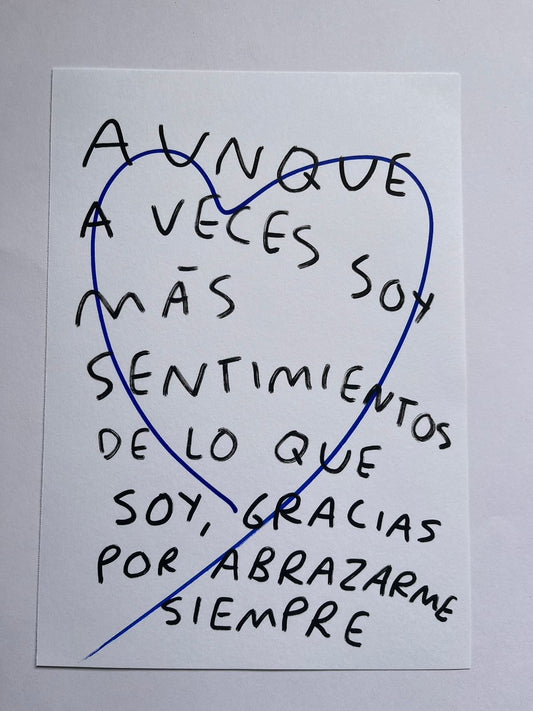 AUNQUE
A VECES SOY
MÁS
SENTIMIENTOS
DE LO QUE
SOY, GRACIAS
POR ABRAZARME
SIEMPRE